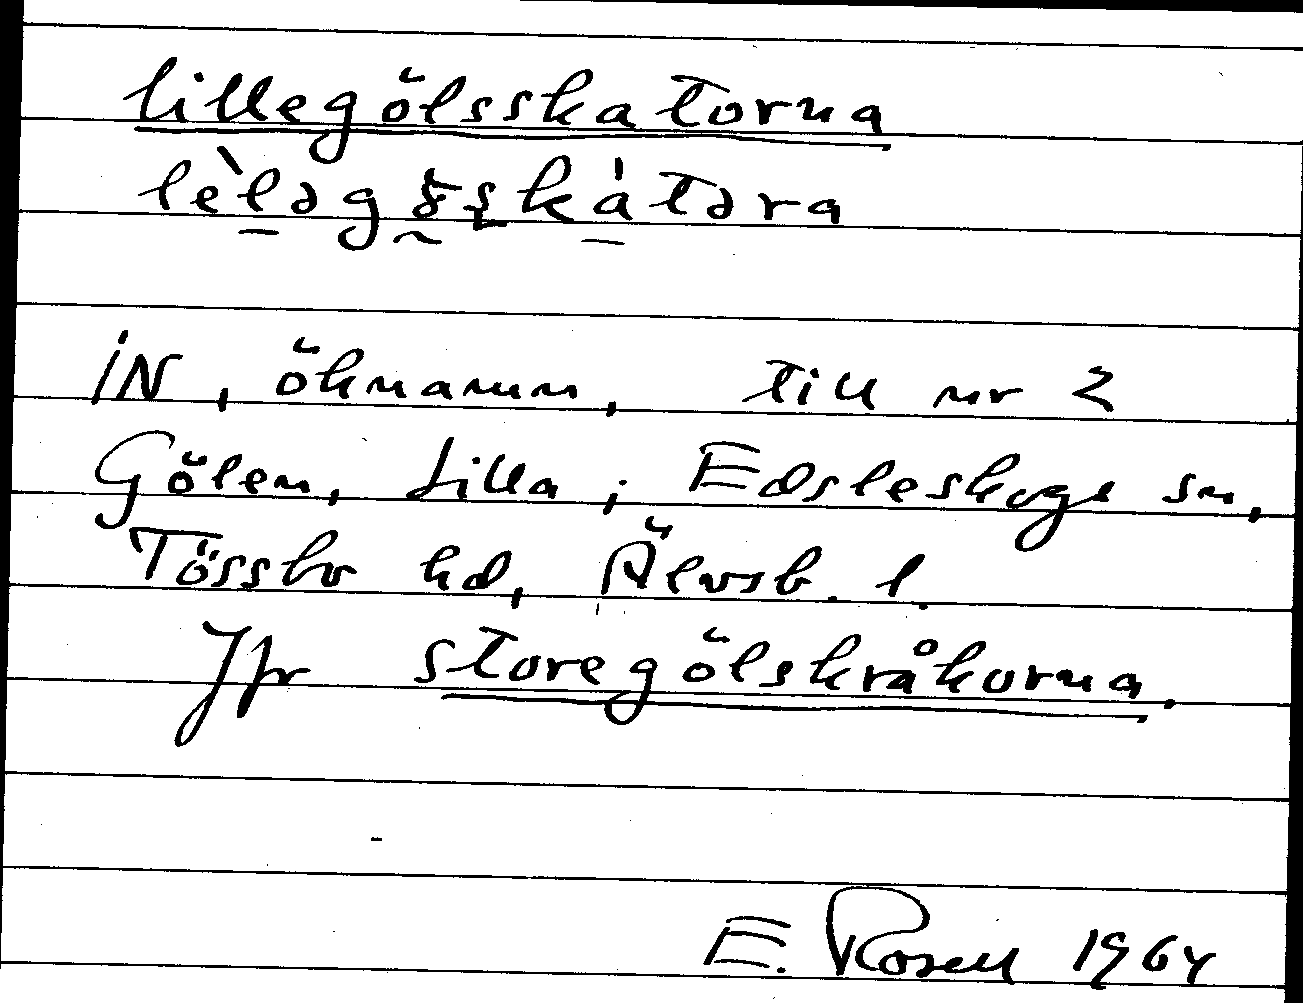 lillegölsskatorna
IN, öknamn, till nr 2
Gölen, Lilla; Edsleskogs sn,
Tössbo hd, Älvsb. l.
Jfr storegölskråkorna.
E. Rosell 1964